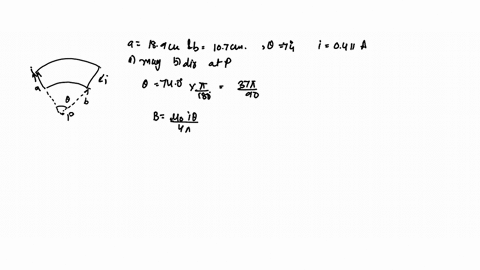 a = 13.4cm & b = 10.7cm. , θ = 74 i = 0.411 A
a) mag b) dir at P
θ = 74.0 × π/180 = 37π/90
B = μ₀ iθ/4π
i
i
a
θ
b
P